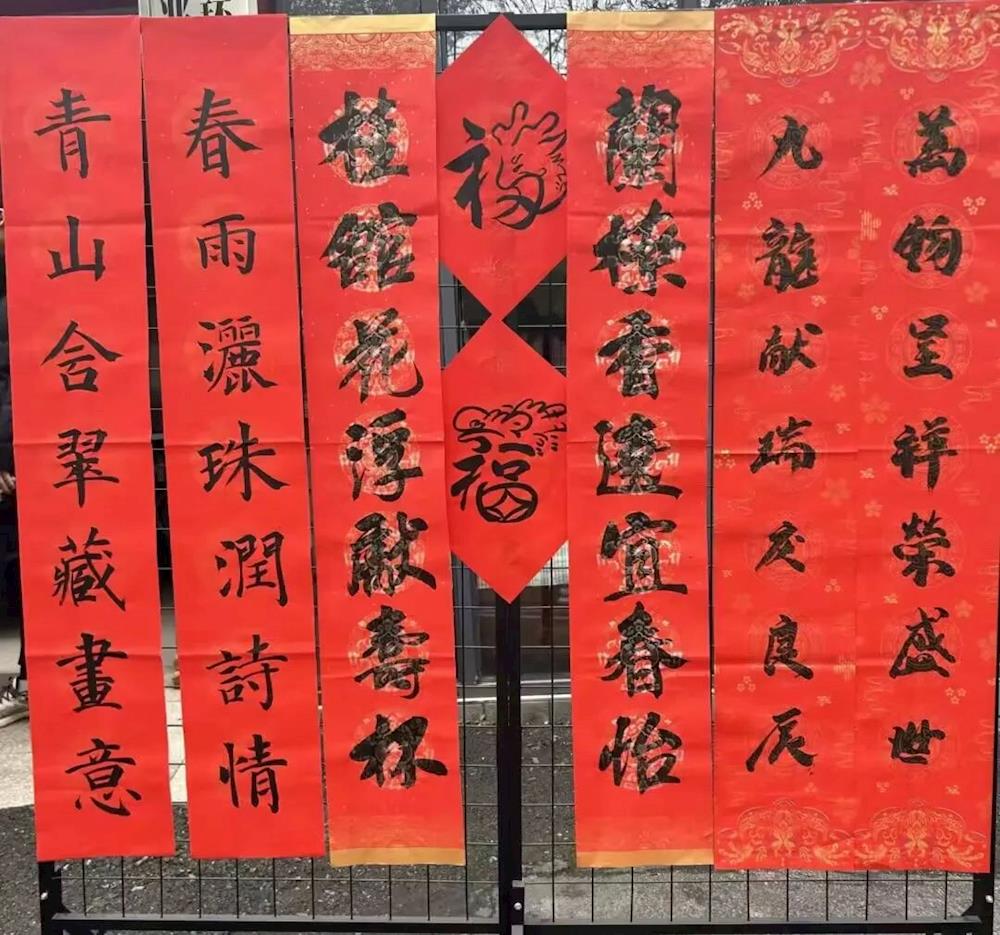 萬鈞呈祥榮盛世
九龍献瑞庆良辰
蘭香達宜春怡
福
福
桂館花浮献壽杯
春雨灑珠潤詩情
青山含翠藏畫意